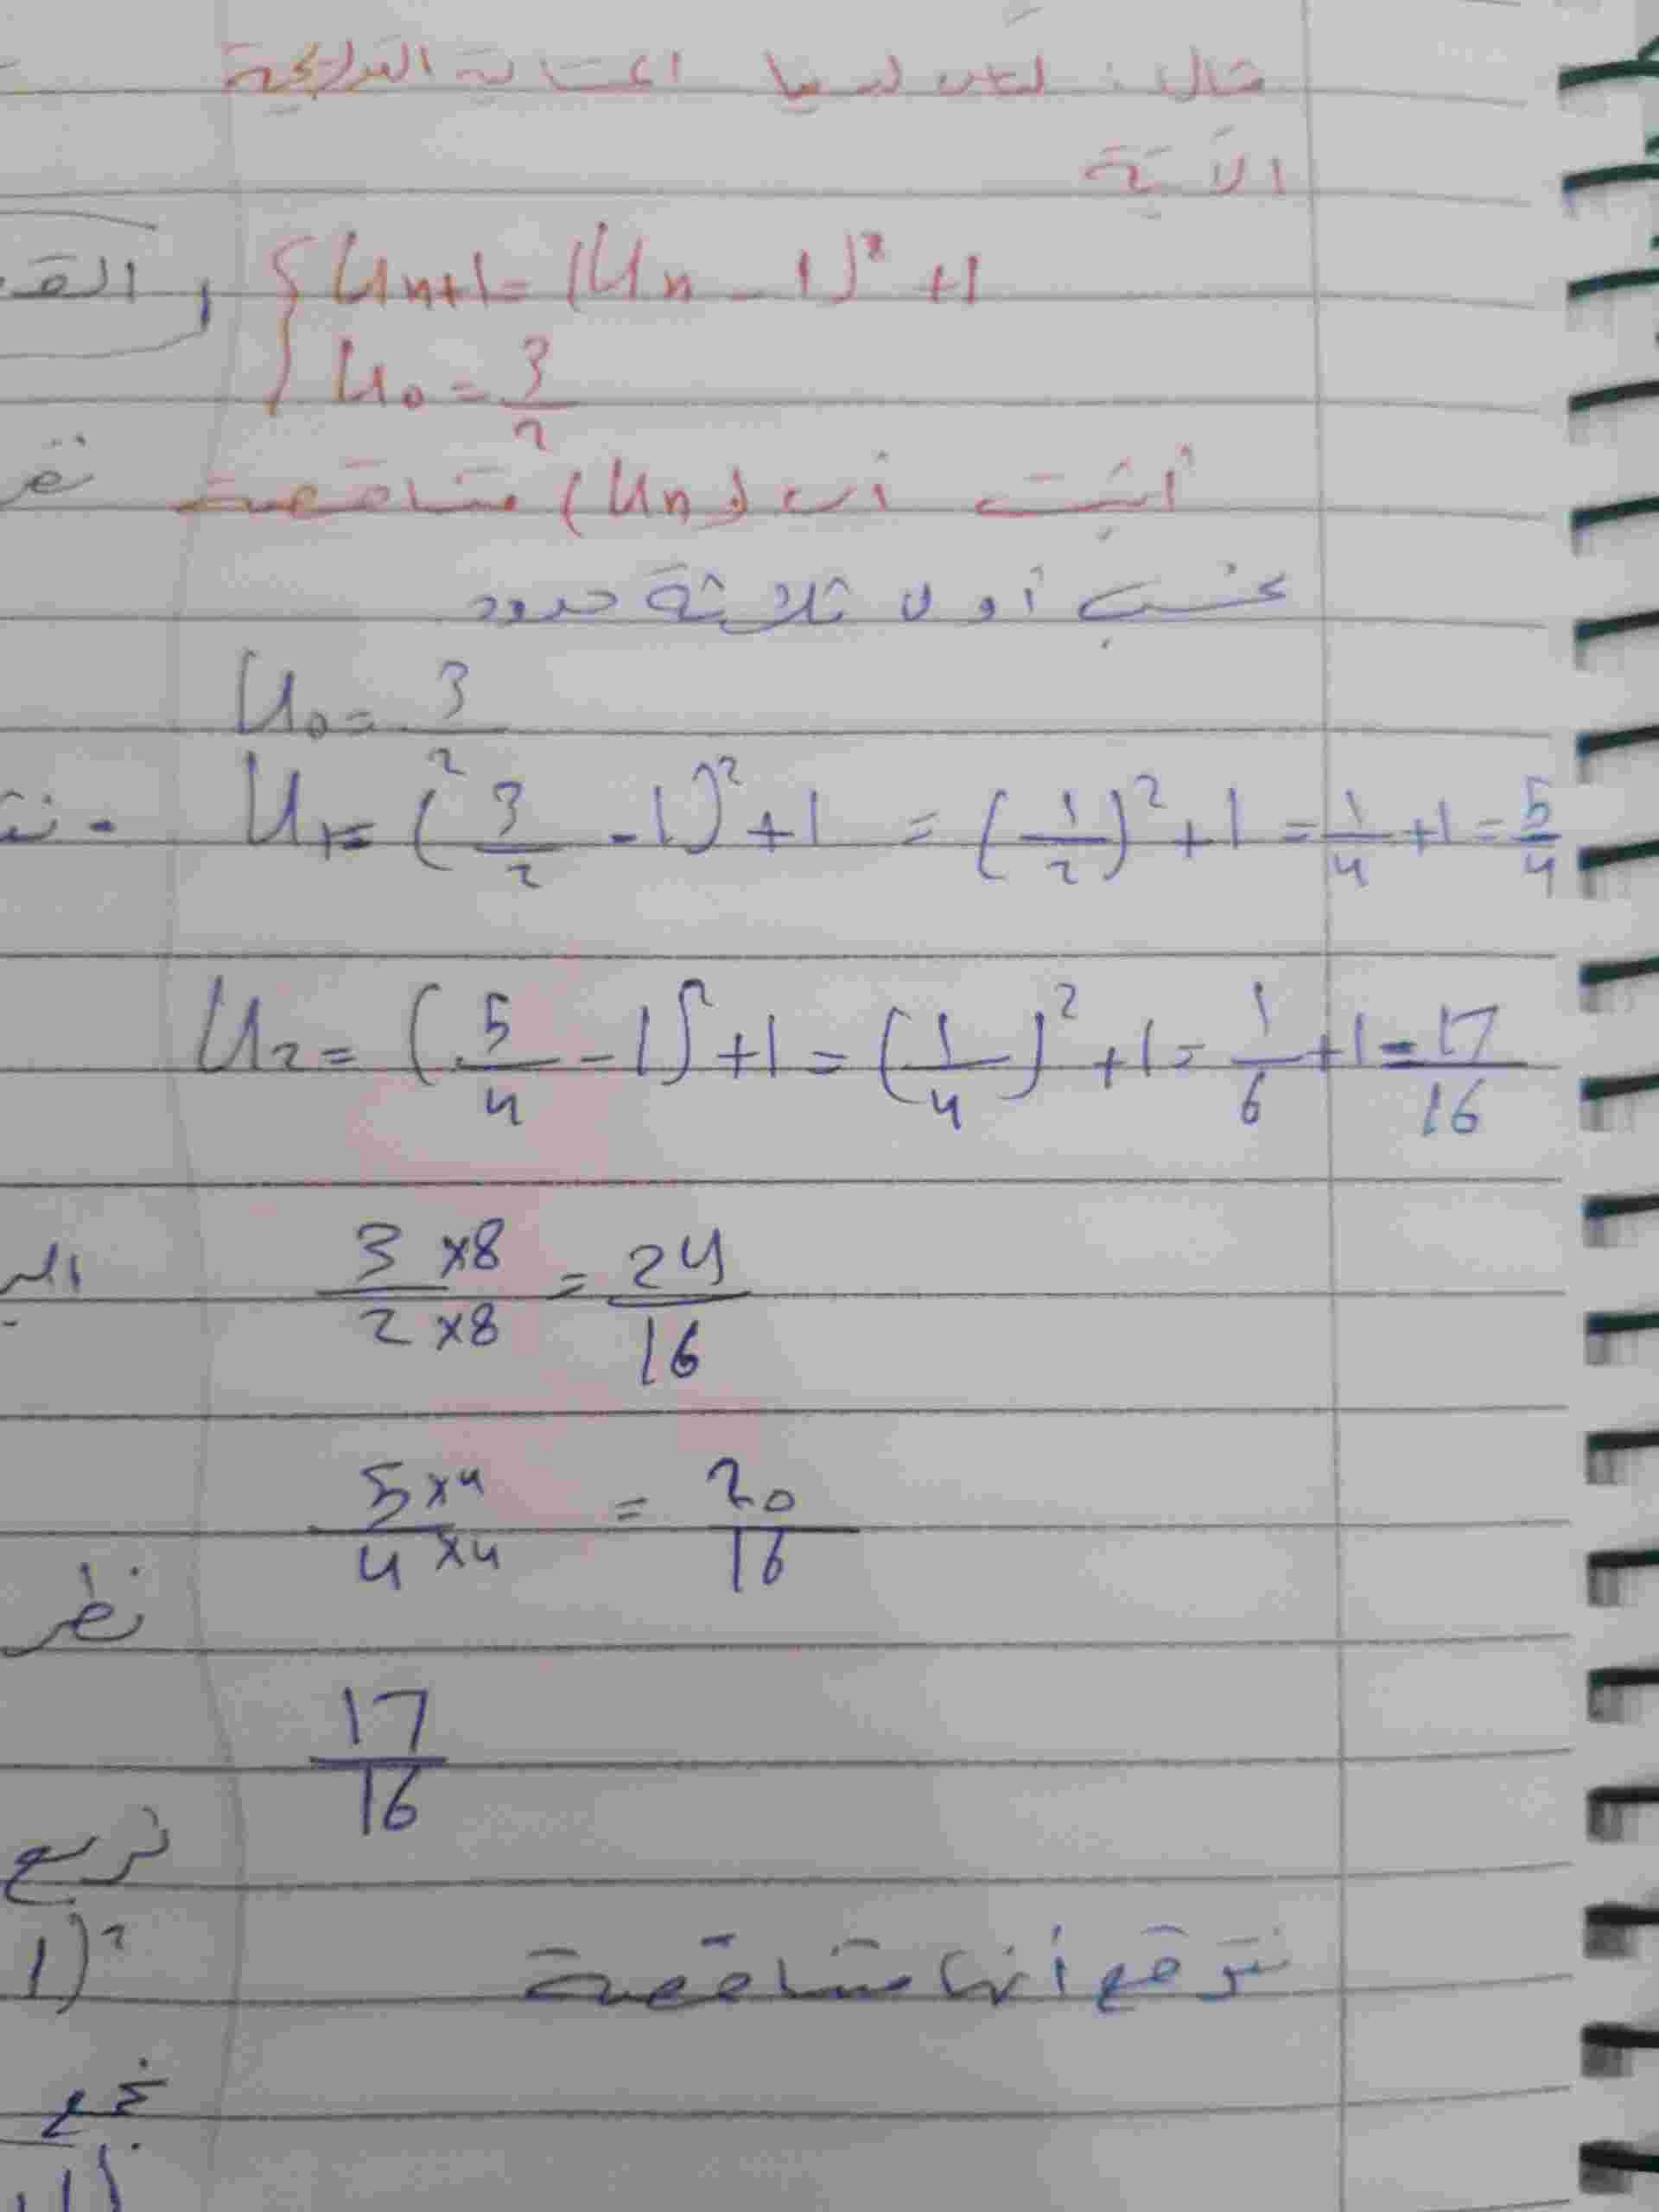 مثال: لتكن لدينا المتتالية التدريجية
الآتية
{ Un+1 = (Un - 1)² + 1
U0 = 3/2
أثبت أن (Un) متناقصة
نحسب أول ثلاثة حدود
U0 = 3/2
U1 = (3/2 - 1)² + 1 = (1/2)² + 1 = 1/4 + 1 = 5/4
U2 = (5/4 - 1)² + 1 = (1/4)² + 1 = 1/6 + 1 = 17/16
3×8/2×8 = 24/16
5×4/4×4 = 20/16
17/16
نتوقع أنها متناقصة
نظر
1)²